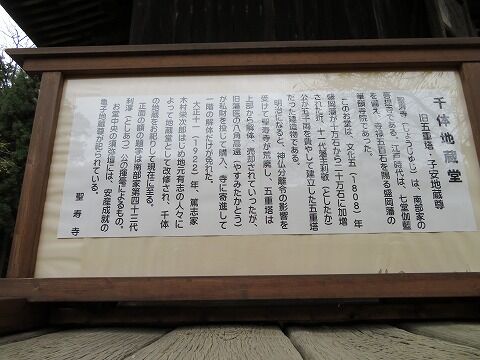 千体地蔵堂
旧五重塔・子安地蔵尊
聖寿寺（しょうじゅじ）は、南部家の
菩提寺である。江戸時代は、七堂伽藍
を備え、寺格五百石を賜る盛岡藩の
筆頭寺院であった。
このお堂は、文化五（1808）年
盛岡藩が十万石から二十万石に加増
された折、十一代藩主利敬（としたか）
公が五千両を費やして建立した五重塔
だった建造物である。
明治になると、神仏分離令の影響を
受けて聖寿寺が荒廃し、五重塔は
上部から解体、売却されていったが、
旧藩医の八角高遠（やすみたかとう）
が私財を投じて購入、寺に寄進して
一階の解体だけ免れた。
大正十一（1922）年、篤志家
木村栄次郎はじめ地元有志の人々に
よって地蔵堂として改修され、千体
の地蔵をお祀りして現在に至る。
正面の額の題字は南部家第四十三代
利淳（としあつ）公の揮毫によるもの。
お堂中央の須弥壇には、安産成就の
亀子地蔵尊が祀られている。
聖寿寺